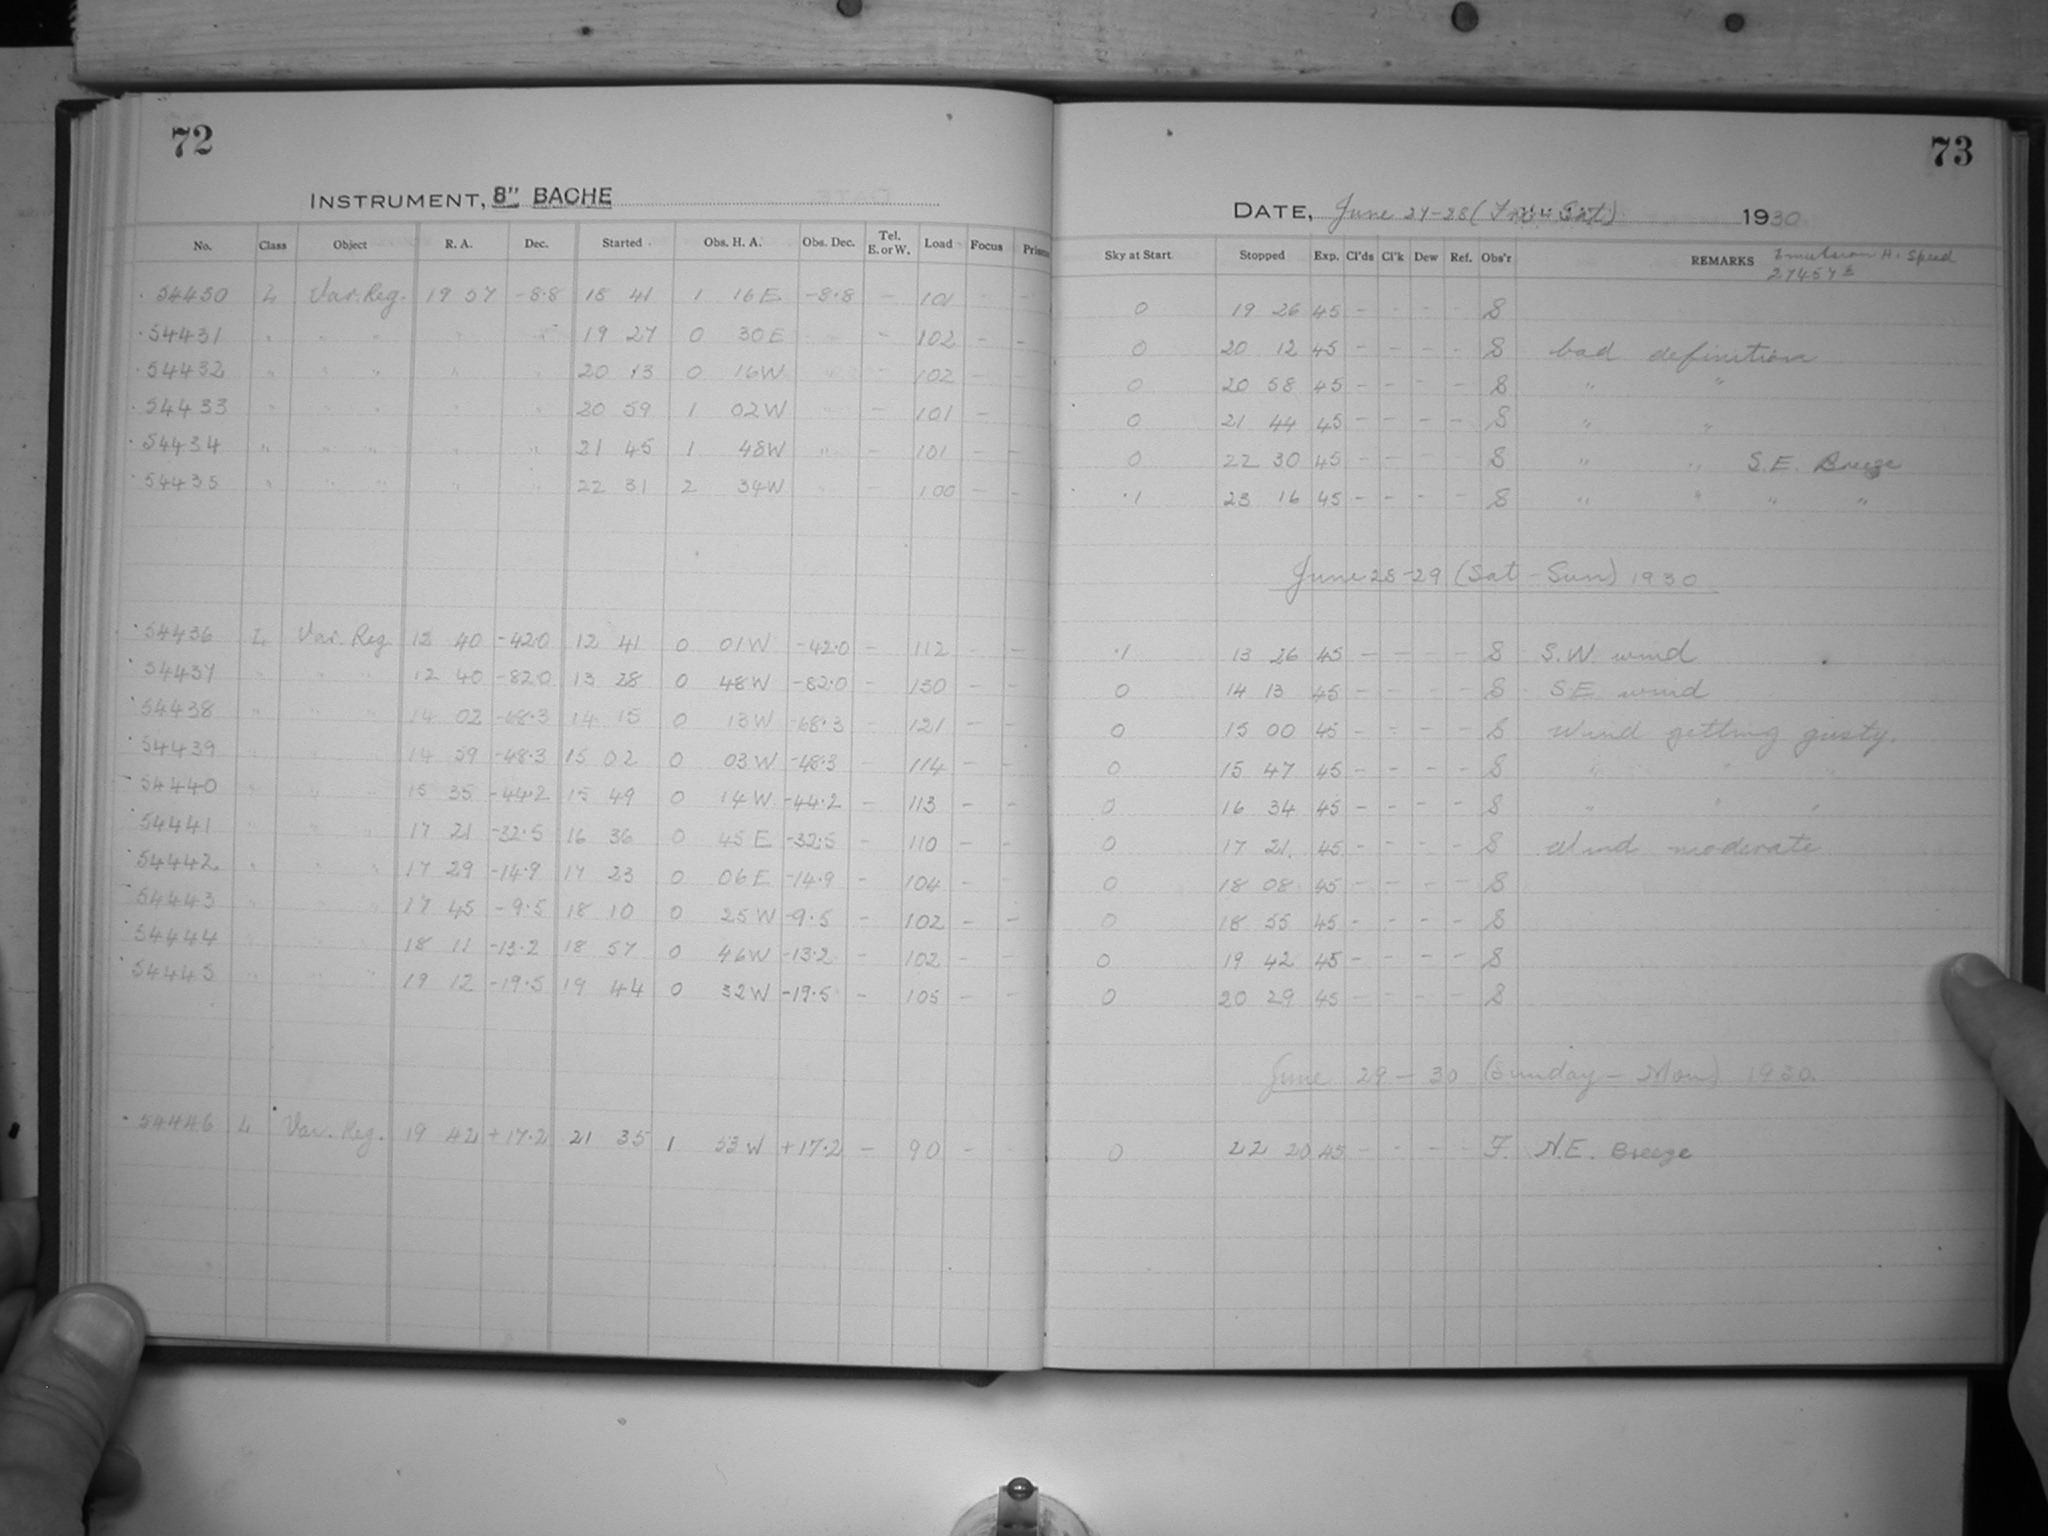 72
INSTRUMENT, 8" BACHE
No. Class Object R. A. Dec. Started Obs. H. A. Obs. Dec. Tel. E. or W. Load Focus Prism
54430 L Var. Reg. 19 57 -8.8 18 41 1 16E -8.8 - 101 - -
54431 " " " " " 19 27 0 30E " - 102 - -
54432 " " " " " 20 13 0 16W " - 102 - -
54433 " " " " " 20 59 1 02W " - 101 -
54434 " " " " " 21 45 1 48W " - 101 - -
54435 " " " " " 22 31 2 34W " - 100 - -
54436 L Var. Reg 12 40 -42.0 12 41 0 01W -42.0 - 112 - -
54437 " " " 12 40 -82.0 13 28 0 48W -82.0 - 130 - -
54438 " " " 14 02 -68.3 14 15 0 13W -68.3 - 121 - -
54439 " " " 14 59 -48.3 15 02 0 03W -48.3 - 114 - -
54440 " " " 15 35 -44.2 15 49 0 14W -44.2 - 113 - -
54441 " " " 17 21 -32.5 16 36 0 45E -32.5 - 110 - -
54442 " " " 17 29 -14.9 17 23 0 06E -14.9 - 104 - -
54443 " " " 17 45 -9.5 18 10 0 25W -9.5 - 102 - -
54444 " " " 18 11 -13.2 18 57 0 46W -13.2 - 102 - -
54445 " " " 19 12 -19.5 19 44 0 32W -19.5 - 105 - -
54446 L Var. Reg. 19 42 +17.2 21 35 1 53W +17.2 - 90 -
73
DATE, June 27-28 (Fri - Sat) 1930
Sky at Start Stopped Exp. Cl'ds Cl'k Dew Ref. Obs'r REMARKS Emulsion H. Speed
27457
0 19 26 45 - - - - S
0 20 12 45 - - - - S bad definition
0 20 58 45 - - - - S " "
0 21 44 45 - - - - S " "
0 22 30 45 - - - - S " " S.E. Breeze
.1 23 16 45 - - - - S " " " "
June 28-29 (Sat - Sun) 1930
.1 13 26 45 - - - - S S.W. wind
0 14 13 45 - - - - S S.E. wind
0 15 00 45 - - - - S Wind getting gusty.
0 15 47 45 - - - - S " " "
0 16 34 45 - - - - S " " "
0 17 21 45 - - - - S Wind moderate
0 18 08 45 - - - - S
0 18 55 45 - - - - S
0 19 42 45 - - - - S
0 20 29 45 - - - - S
June 29 - 30 (Sunday - Mon) 1930.
0 22 20 45 - - - - F. N.E. Breeze